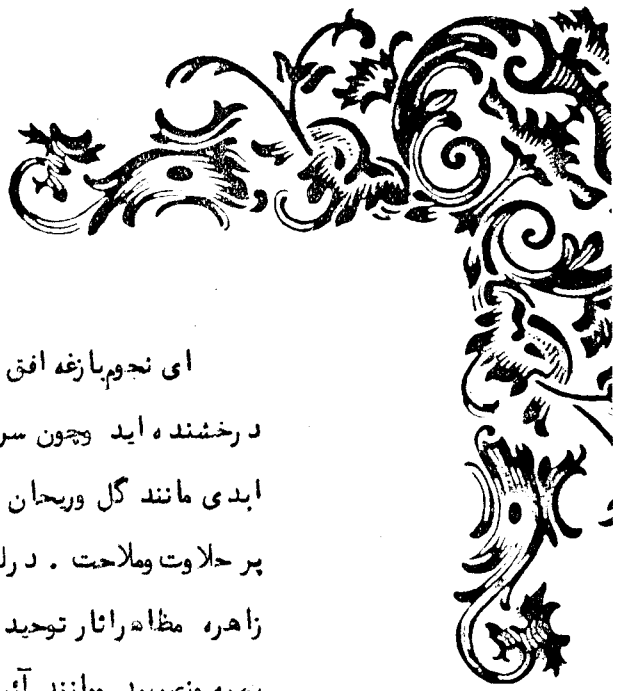 ای نجوم بازغه افق
درخشنده اید وچون سر
ابدی مانند گل وریحان
پر حلاوت وملاحت . درل
زاهره مظاهراثار توحید
ومانند آئی